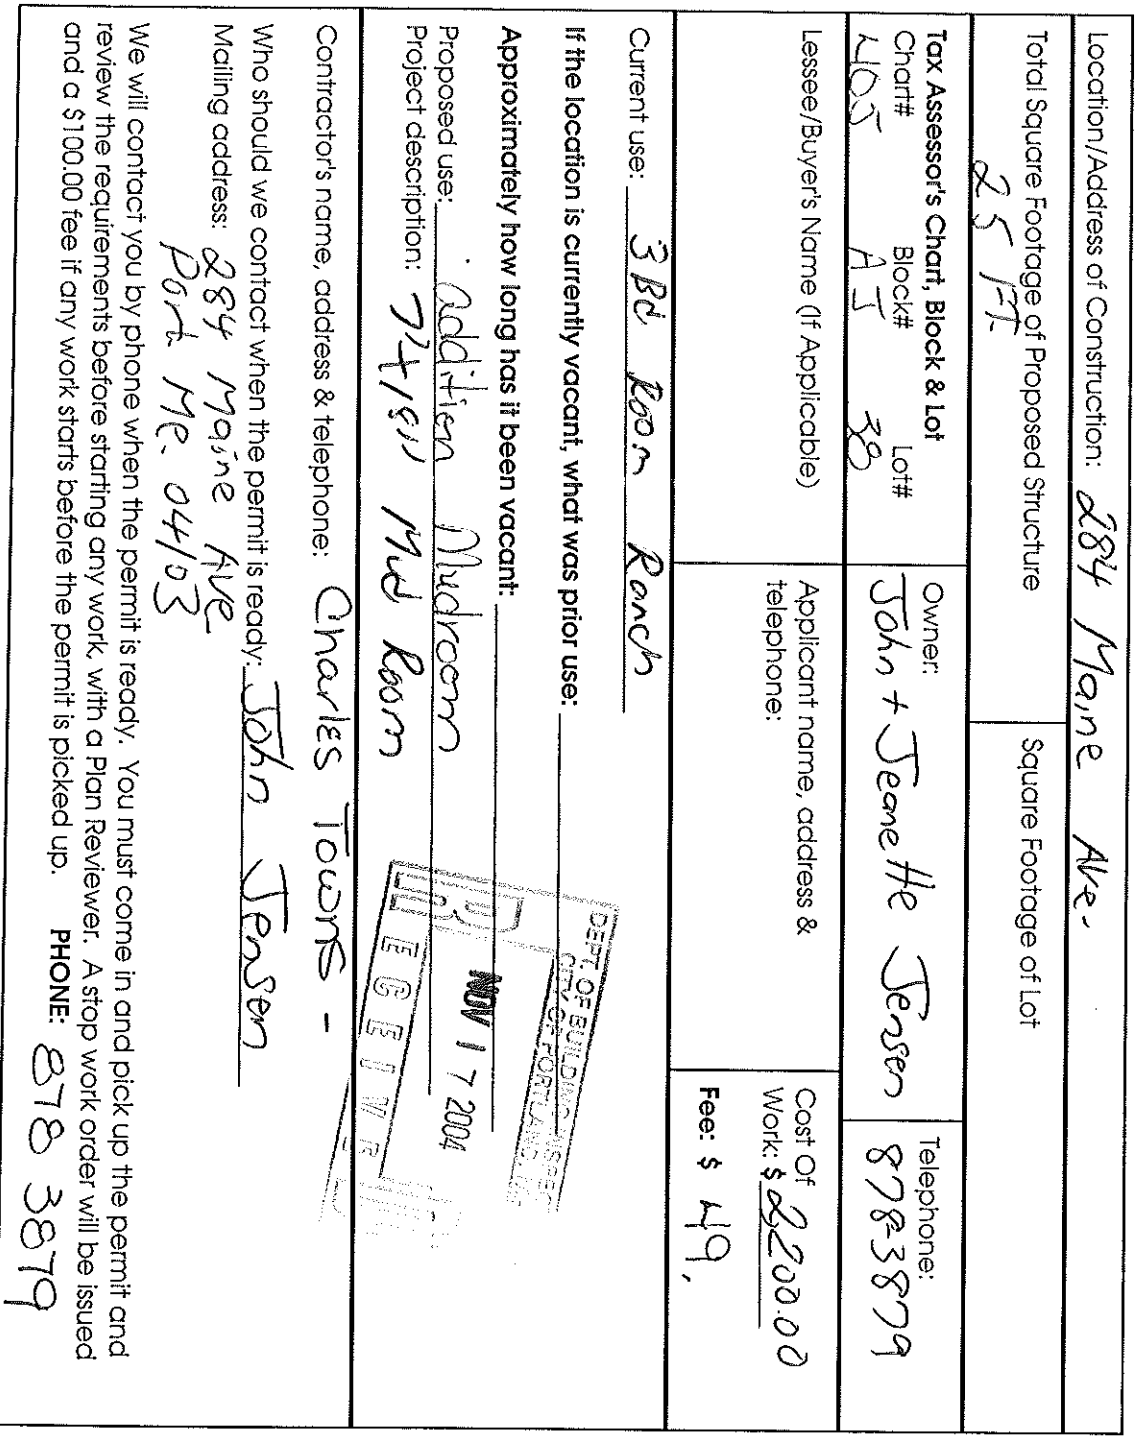 Location/Address of Construction: 284 Maine Ave.
Total Square Footage of Proposed Structure
25 FT.
Square Footage of Lot
Tax Assessor's Chart, Block & Lot
Chart# Block# Lot#
405 A J 38
Owner:
John + Jeanette Jensen
Telephone:
878-3879
Lessee/Buyer's Name (If Applicable)
Applicant name, address &
telephone:
Cost Of
Work: $ 2,200.00
Fee: $ 49,
Current use: 3 Bd Room Ranch
If the location is currently vacant, what was prior use:
Approximately how long has it been vacant:
Proposed use: addition Mudroom
Project description: Mud Room
DEPT. OF BUILDING INSPEC
CITY OF PORTLAND,
NOV 17 2004
RECEIVE
Contractor's name, address & telephone: Charles Towns -
Who should we contact when the permit is ready: John Jensen
Mailing address: 284 Maine Ave
Port. Me. 04103
We will contact you by phone when the permit is ready. You must come in and pick up the permit and
review the requirements before starting any work, with a Plan Reviewer. A stop work order will be issued
and a $100.00 fee if any work starts before the permit is picked up. PHONE: 878 3879